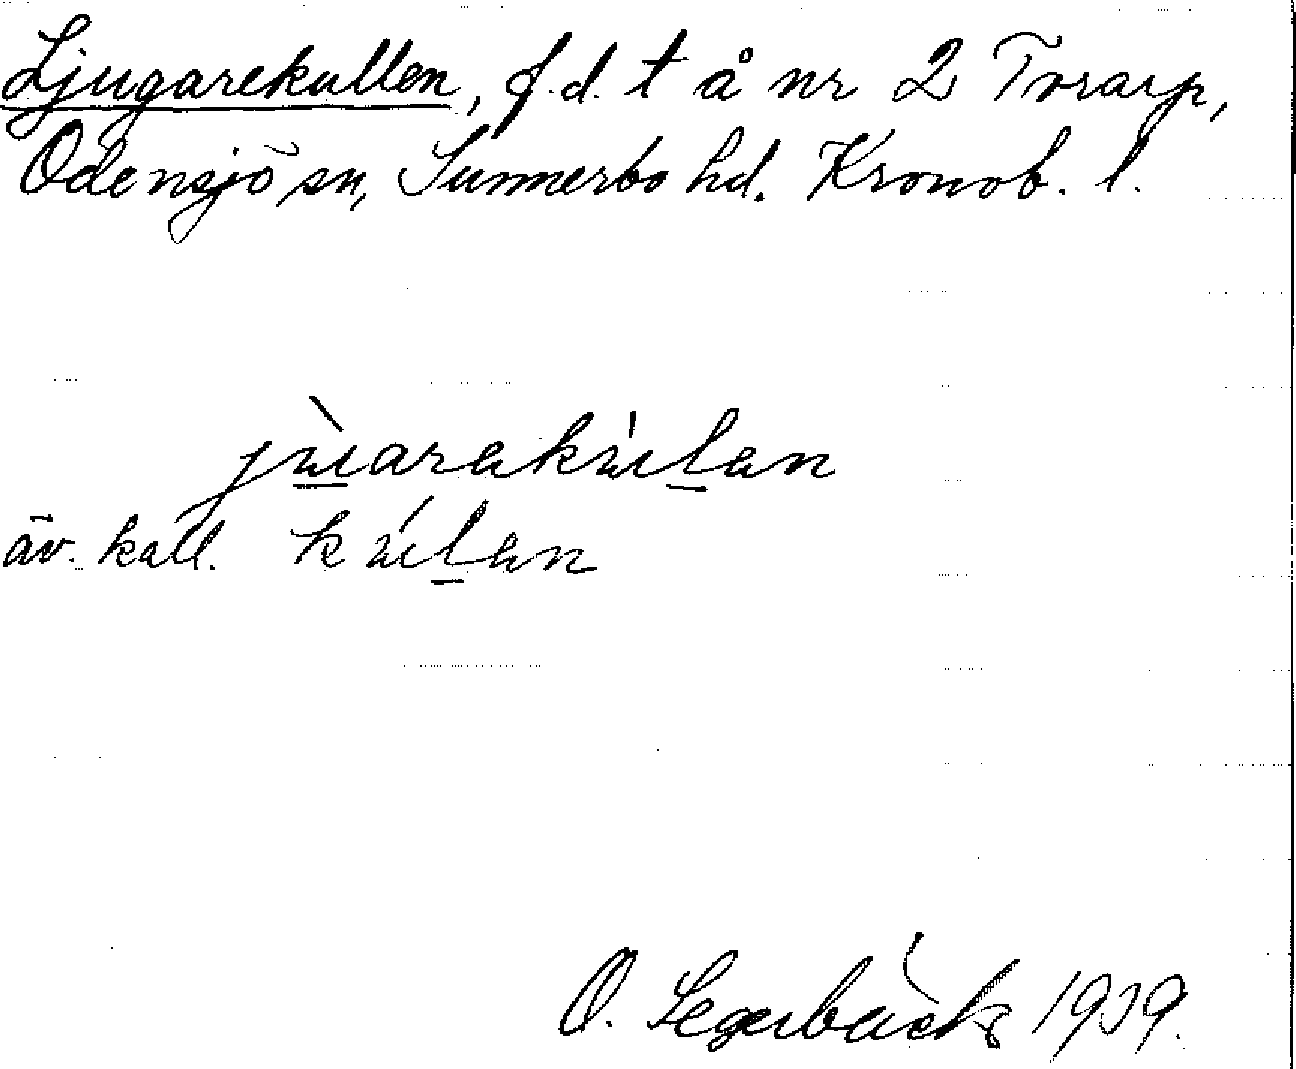 Ljugarekullen, f.d. t å nr 2 Torarp,
Odensjö sn, Sunnerbo hd. Kronob. l.
jùarakúlan
äv. kall. kúlan
O. Segerbäck 1939.